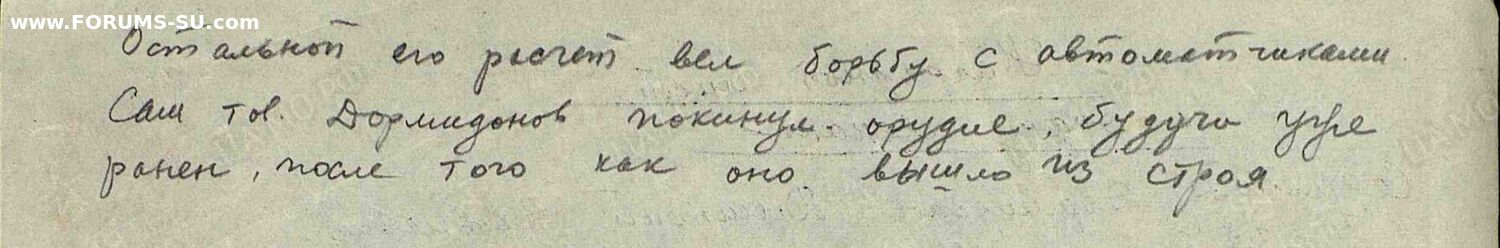 www.FORUMS-SU.com
Остальной его расчет вел борьбу с автоматчиками.
Сам тов. Дормидонов покинул орудие, будучи уже
ранен, после того как оно вышло из строя.